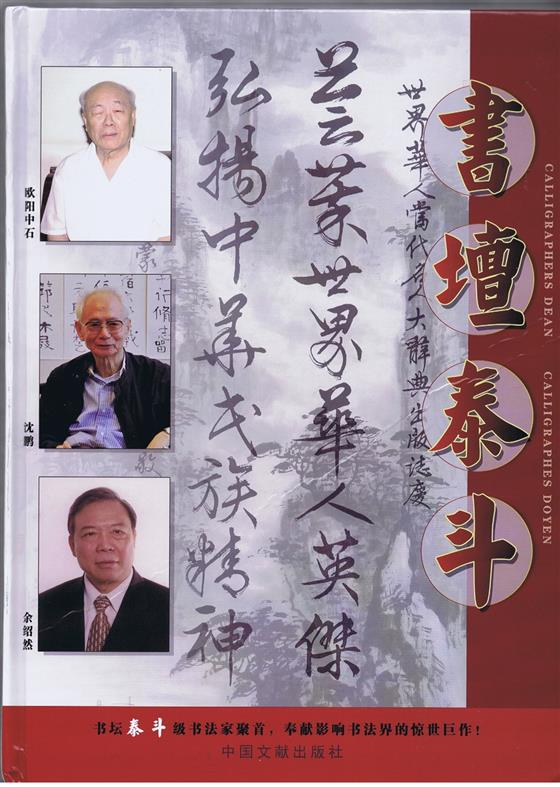 書壇泰斗
CALLIGRAPHERS DEAN
CALLIGRAPHES DOYEN
世界華人當代名人大辭典出版誌慶
芸萃世界華人英傑
弘揚中華民族精神
欧阳中石
沈鹏
余绍然
书坛泰斗级书法家聚首，奉献影响书法界的惊世巨作！
中国文献出版社